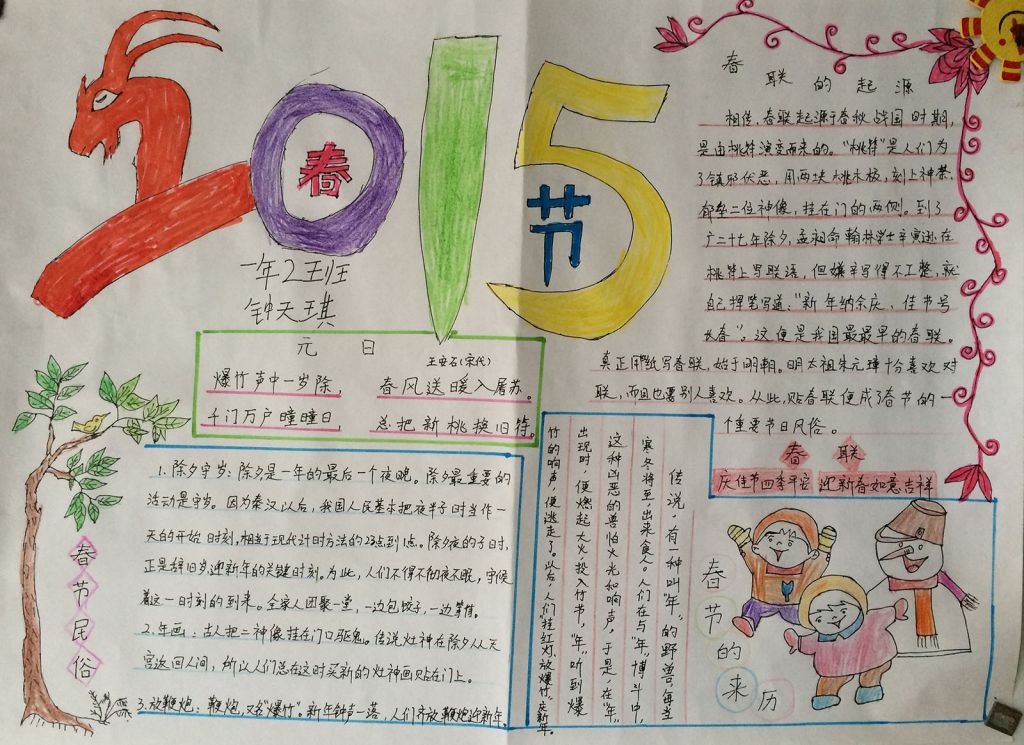 2015
春
节
一年2班
钟天琪
元 日
王安石(宋代)
爆竹声中一岁除,
春风送暖入屠苏。
千门万户曈曈日,
总把新桃换旧符。
春联的起源
相传,春联起源于春秋战国时期,
是由桃符演变而来的。"桃符"是人们为
了镇邪伏恶,用两块桃木板,刻上神荼、
郁垒二位神像,挂在门的两侧。到了
广二十七年除夕,孟昶命翰林学士辛寅逊在
桃符上写联语,但嫌辛写得不工整,就
自己提笔写道:"新年纳余庆,佳节号
长春"。这便是我国最最早的春联。
真正用纸写春联,始于明朝。明太祖朱元璋十分喜欢对
联,而且也要别人喜欢。从此,贴春联便成了春节的一
个重要节日风俗。
春联
庆佳节四季平安 迎新春如意吉祥
春节民俗
1.除夕守岁:除夕是一年的最后一个夜晚。除夕最重要的
活动是守岁。因为秦汉以后,我国人民基本把夜半子时当作一
天的开始时刻,相当于现代计时方法的23点到1点。除夕夜的子时,
正是辞旧岁迎新年的关键时刻。为此,人们不得不彻夜不眠,守候
着这一时刻的到来。全家人团聚一堂,一边包饺子,一边等待。
2.年画:古人把二神像挂在门口驱鬼。传说灶神在除夕从天
宫返回人间,所以人们总在这时买新的灶神画贴在门上。
3.放鞭炮:鞭炮,又名"爆竹"。新年钟声一落,人们齐放鞭炮迎新年。
传说,有一种叫"年"的野兽,每当
寒冬将至,出来食人。人们在与"年"博斗中,
这种凶恶的兽怕火光和响声,于是,在"年"
出现时,便燃起大火,投入竹节,"年"听到爆
竹的响声,便逃走了。以后,人们挂红灯,放爆竹,庆新年。
春节的来历